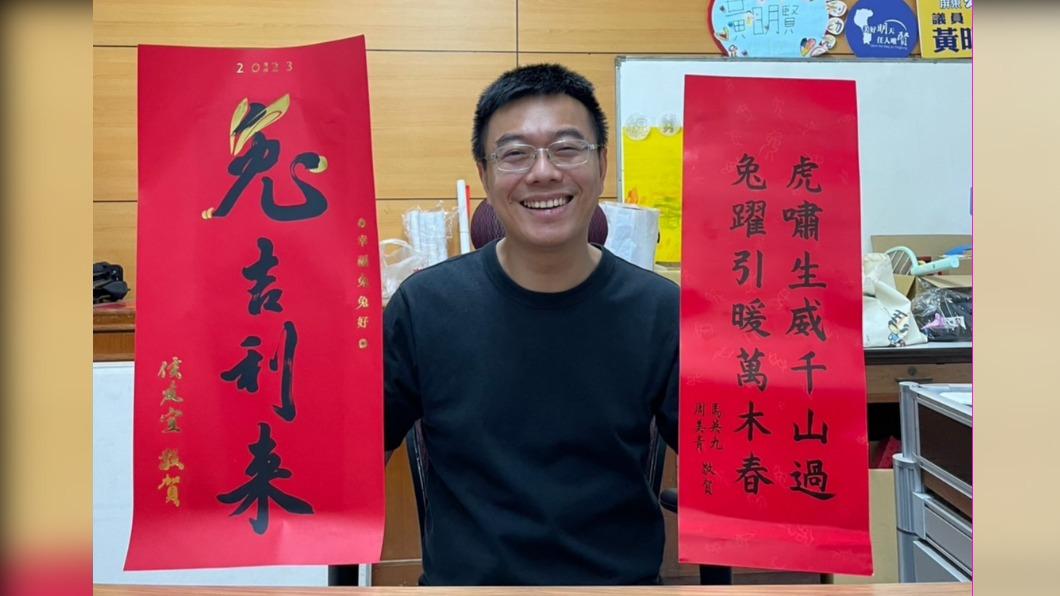 2023
兔
吉
利
來
幸福兔兔好
侯友宜 敬賀
虎嘯生威千山過
兔躍引暖萬木春
馬英九
周美青
敬賀
黃明賢
美好明天
任人唯賢
屏東
議員
黃明